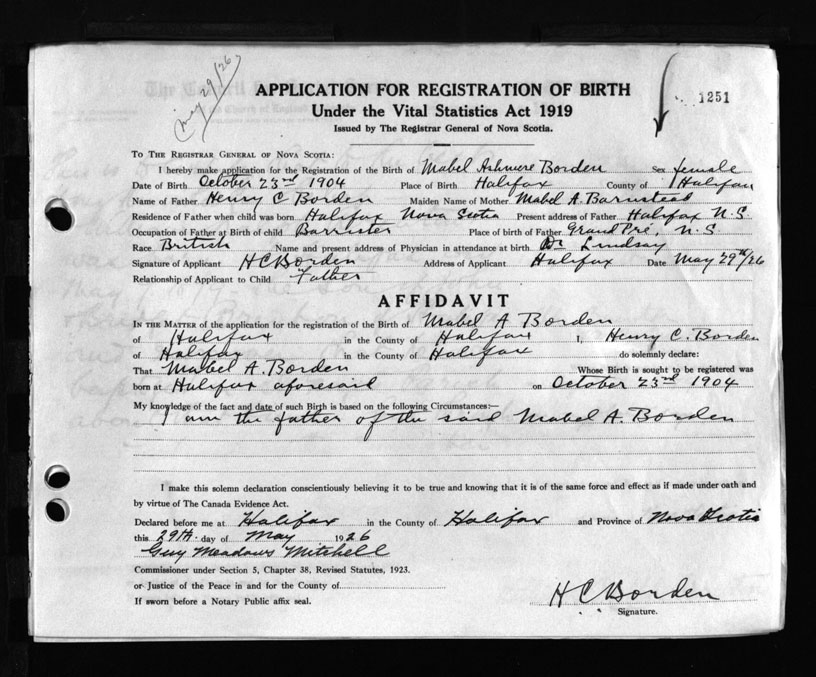 May 29/26
APPLICATION FOR REGISTRATION OF BIRTH
1251
Under the Vital Statistics Act 1919
Issued by The Registrar General of Nova Scotia.
TO THE REGISTRAR GENERAL OF NOVA SCOTIA:
I hereby make application for the Registration of the Birth of Mabel Ashmere Borden Sex female
Date of Birth October 23rd 1904 Place of Birth Halifax County of Halifax
Name of Father Henry C Borden Maiden Name of Mother Mabel A. Barnstead
Residence of Father when child was born Halifax Nova Scotia Present address of Father Halifax N.S.
Occupation of Father at Birth of child Barrister Place of birth of Father Grand Pré, N.S
Race British Name and present address of Physician in attendance at birth Dr Lindsay
Signature of Applicant H C Borden Address of Applicant Halifax Date May 29th/26
Relationship of Applicant to Child Father
AFFIDAVIT
IN THE MATTER of the application for the registration of the Birth of Mabel A Borden
of Halifax in the County of Halifax I, Henry C. Borden
of Halifax in the County of Halifax do solemnly declare:
That Mabel A. Borden Whose Birth is sought to be registered was
born at Halifax aforesaid on October 23rd 1904
My knowledge of the fact and date of such Birth is based on the following Circumstances:—
I am the father of the said Mabel A. Borden
I make this solemn declaration conscientiously believing it to be true and knowing that it is of the same force and effect as if made under oath and
by virtue of The Canada Evidence Act.
Declared before me at Halifax in the County of Halifax and Province of Nova Scotia
this 29th. day of May 1926
Guy Meadows Mitchell
Commissioner under Section 5, Chapter 38, Revised Statutes, 1923.
or Justice of the Peace in and for the County of
If sworn before a Notary Public affix seal.
H C Borden
Signature.